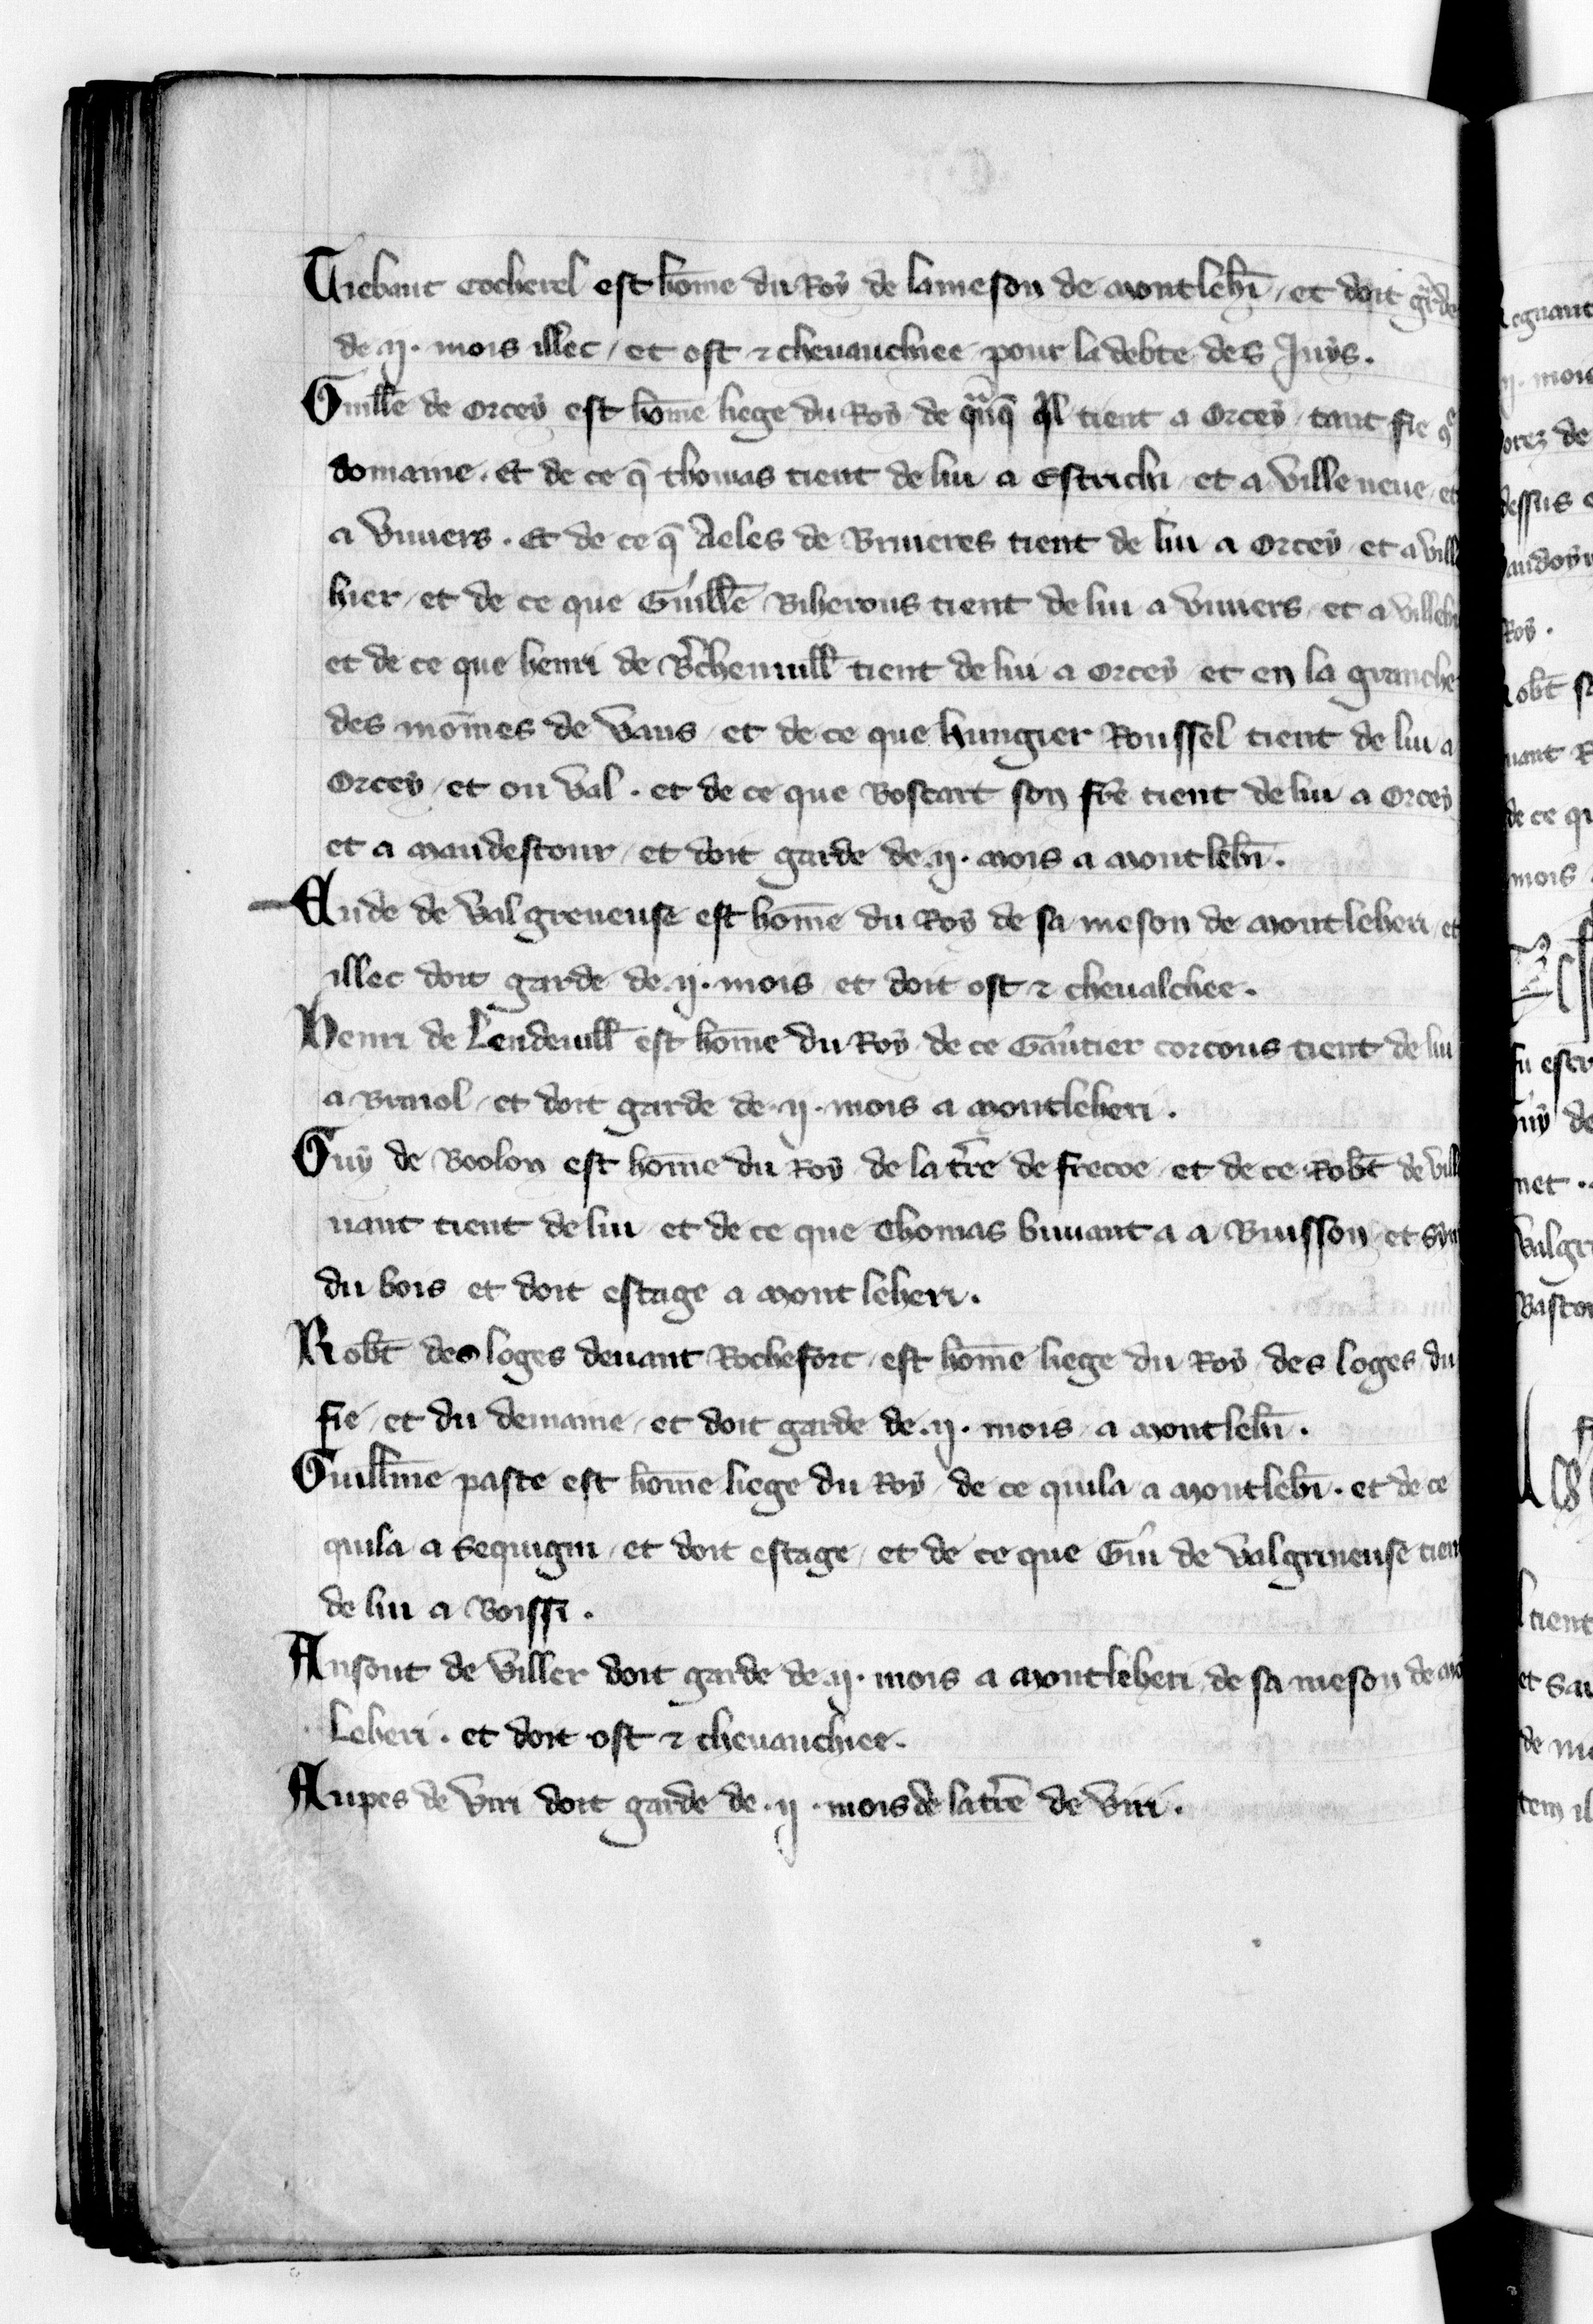 Tiebaut cocherel est hom̄e du Roy de lameson de montleh̄i / et doit garde
de .ij. mois illec / et ost ⁊ cheuauchiee pour la debte des Juys.
Guill̄e de Orcey est hom̄e liege du Roy de quāq̄ q̄l tient a Orcey tant fie q̄
domaine. Et de ce q̄ thomas tient de lui a Estrichi et a ville neue et
a viuiers. Et de ce q̄ Aeles de Bruieres tient de lui a Orcey et a vill
hier / et de ce que Guill̄e Biherous tient de lui a viuiers et a villeb
et de ce que henri de B̾cheinuill̄ tient de lui a Orcey et en la granche
des moīnes de vaus / et de ce que hungier Roussel tient de lui a
Orcey / et ou val. et de ce que Boscart son fr̄e tient de lui a Orcey
et a maudestour / et doit garde de .ij. mois a montleh̄i.
Aude de valgreneuse est hom̄e du Roy de sa meson de montleheri / et
illec doit garde de .ij. mois et doit ost ⁊ cheualchee.
Henri de Lendeuill̄ est hom̄e du Roy de ce Gautier corcous tient de lui
a Bruiol / et doit garde de .ij. mois a montleheri.
Guy de Boolon est hom̄e du Roy de la t̄re de frecoe / et de ce Rob̄t de vill
uant tient de lui et de ce que Thomas buuant a a Buisson et Sym
du bois et doit estage a mont leheri.
Rob̄t des loges deuant Rochefort / est hom̄e liege du Roy des loges du
fie / et du demaine / et doit garde de .ij. mois a montleh̄i.
Guillm̄e paste est hom̄e liege du Roy de ce quila a montleh̄i. et de ce
quila a Sequigni / et doit estage / et de ce que Gui de valgrineuse tient
de lui a Boissi.
Ansout de viller doit garde de .ij. mois a montleheri de sa meson de mo
leheri. et doit ost ⁊ cheuauchiee.
Aupes de viri doit garde de .ij. mois de la t̄re de viri.